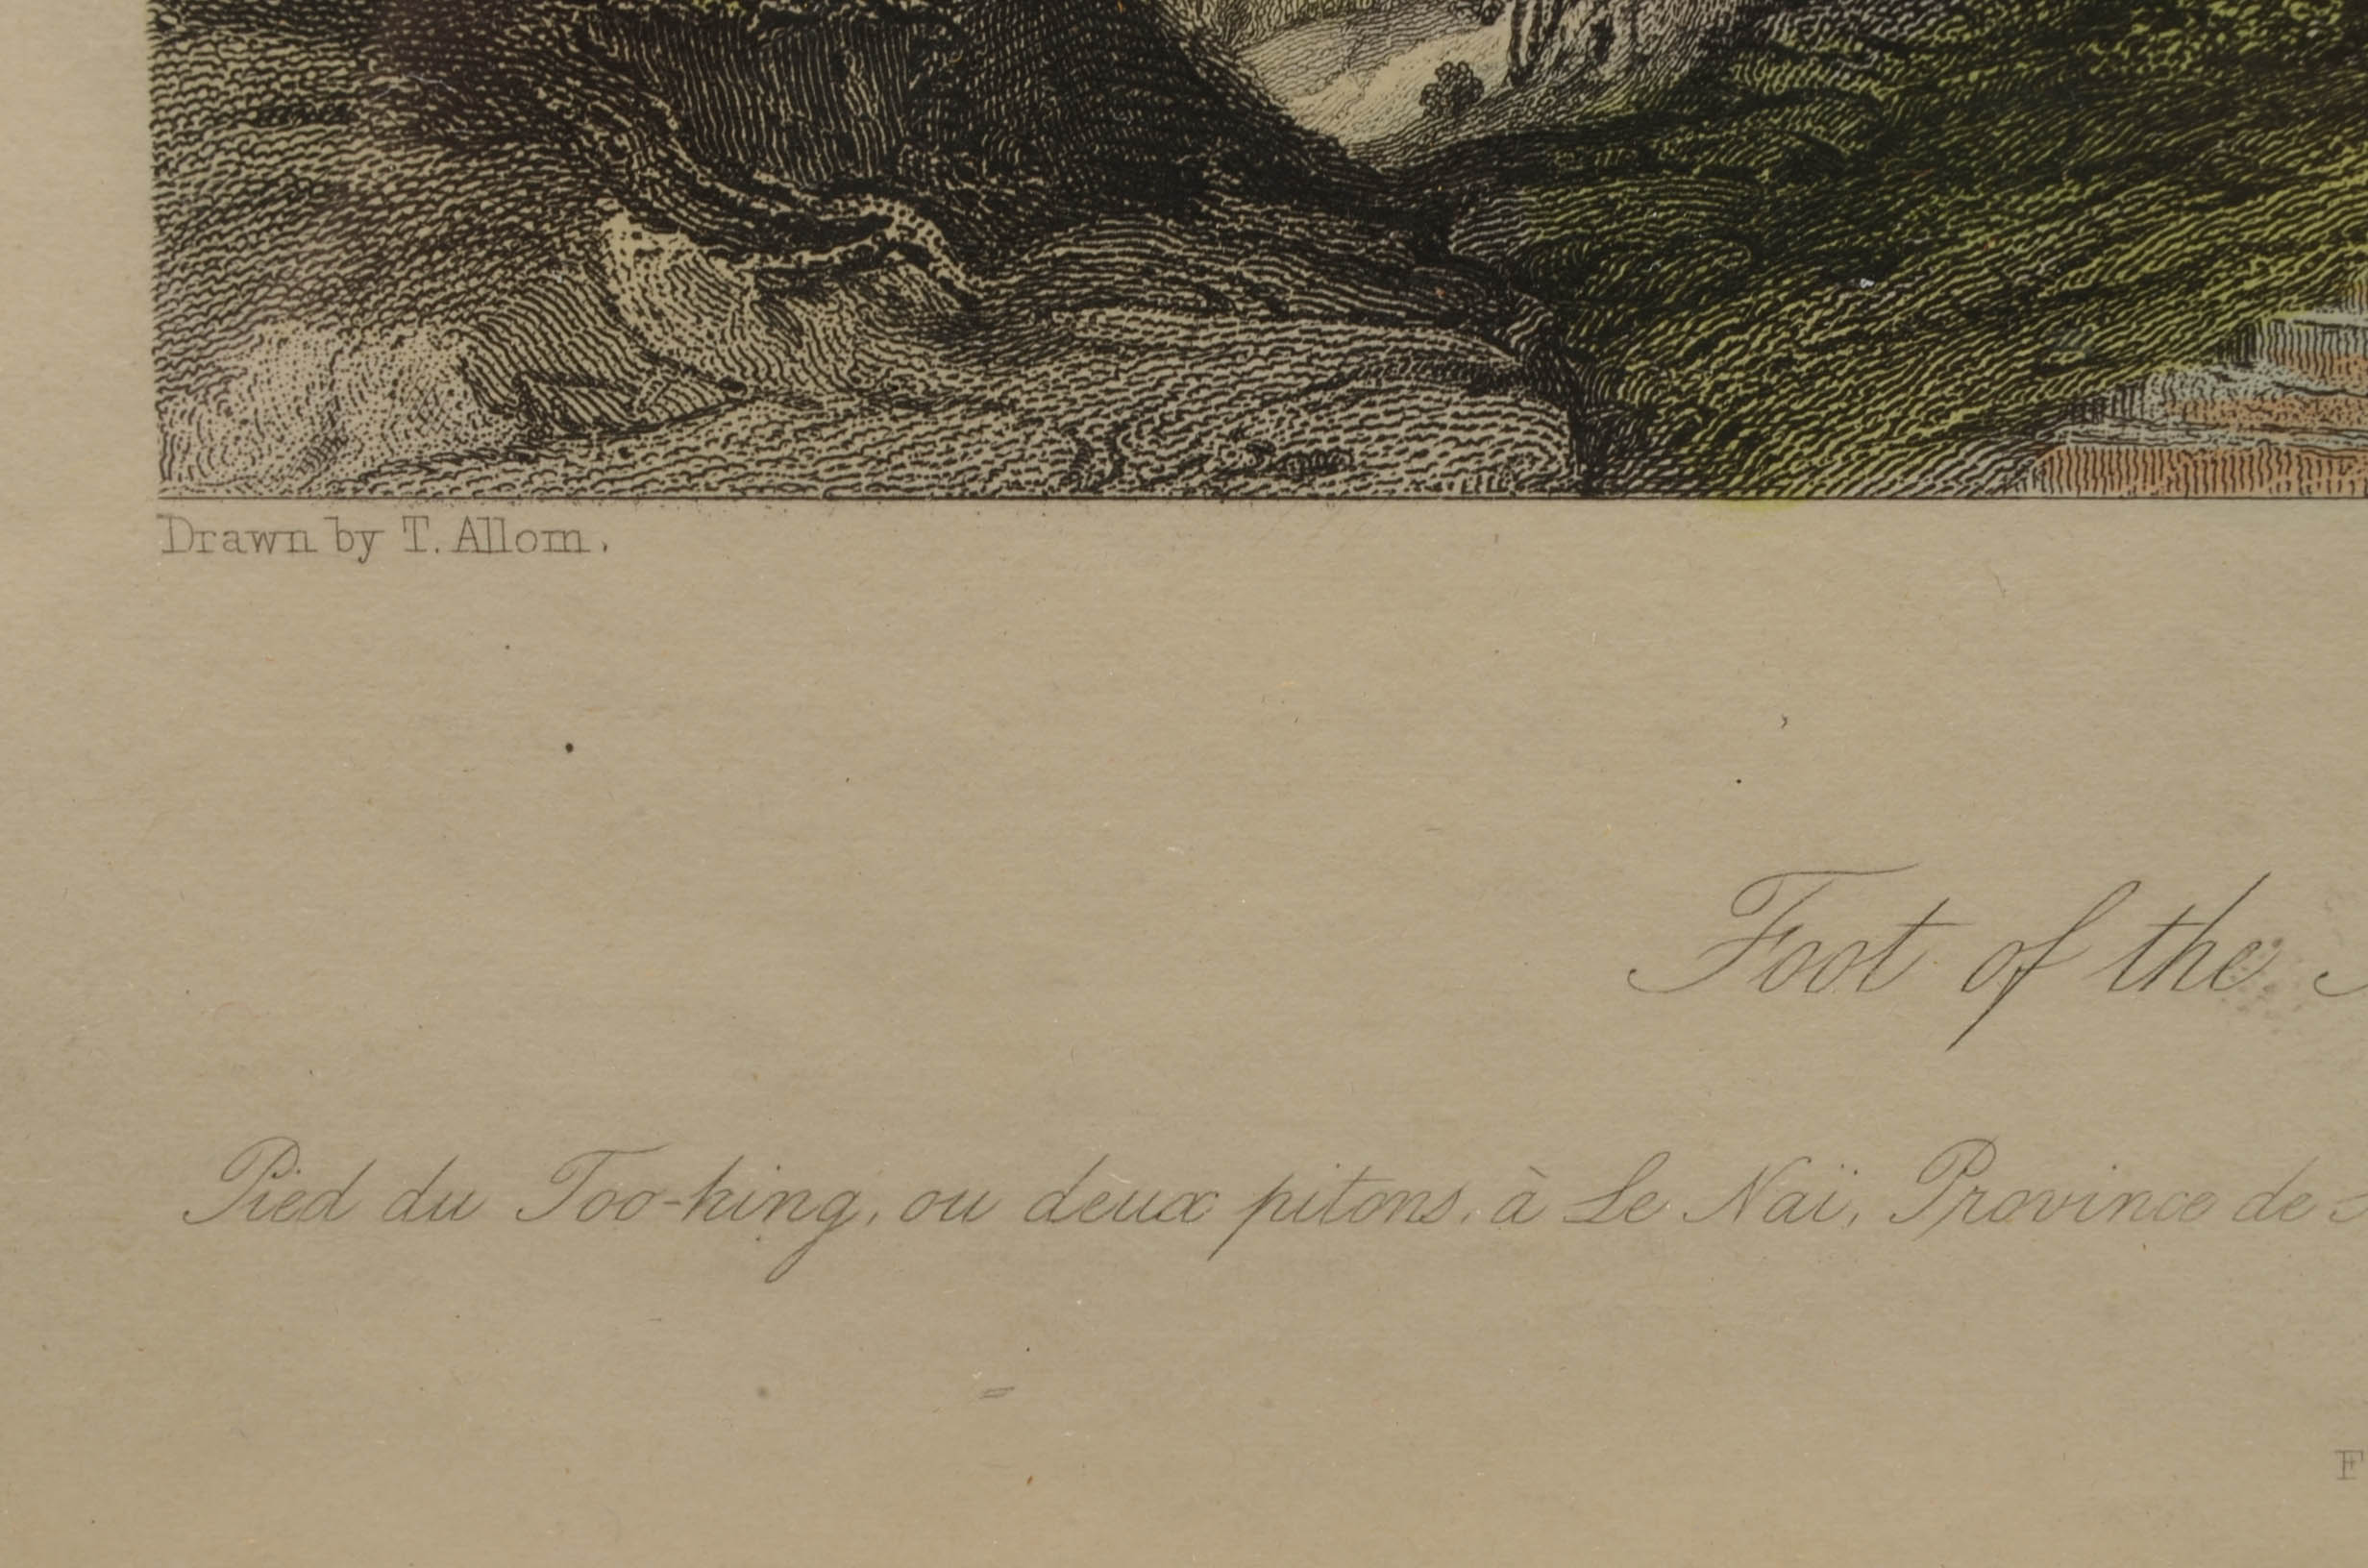 Drawn by T. Allom.
Foot of the
Pied du Too-hing, ou deux pitons, à Le Naï, Province de
F